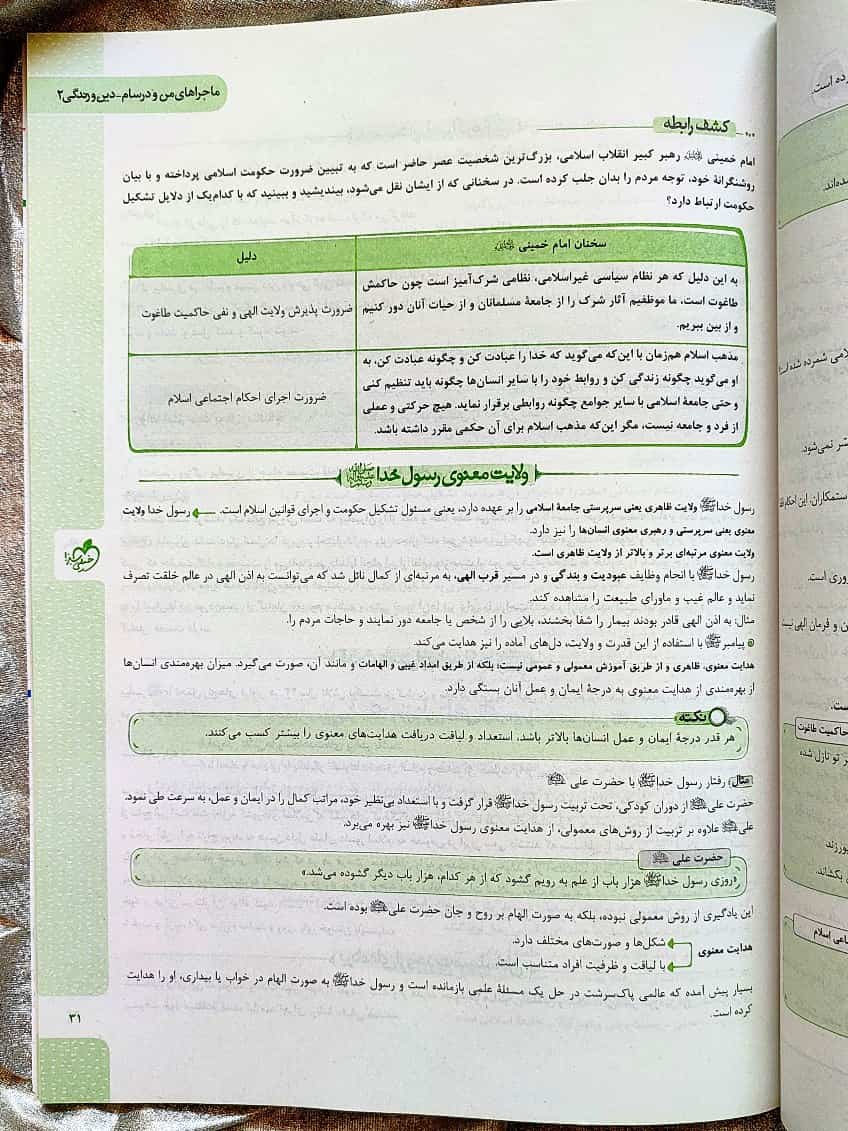 ماجراهای من و درسام - دین و زندگی ۲
کشف رابطه
امام خمینی رهبر کبیر انقلاب اسلامی، بزرگ‌ترین شخصیت عصر حاضر است که به تبیین ضرورت حکومت اسلامی پرداخته و با بیان
روشنگرانهٔ خود، توجه مردم را بدان جلب کرده است. در سخنانی که از ایشان نقل می‌شود، بیندیشید و ببینید که با کدام‌یک از دلایل تشکیل
حکومت ارتباط دارد؟
سخنان امام خمینی
دلیل
به این دلیل که هر نظام سیاسی غیراسلامی، نظامی شرک‌آمیز است چون حاکمش
طاغوت است، ما موظفیم آثار شرک را از جامعهٔ مسلمانان و از حیات آنان دور کنیم
و از بین ببریم.
ضرورت پذیرش ولایت الهی و نفی حاکمیت طاغوت
مذهب اسلام هم‌زمان با این‌که می‌گوید که خدا را عبادت کن و چگونه عبادت کن، به
او می‌گوید چگونه زندگی کن و روابط خود را با سایر انسان‌ها چگونه باید تنظیم کنی
و حتی جامعهٔ اسلامی با سایر جوامع چگونه روابطی برقرار نماید. هیچ حرکتی و عملی
از فرد و جامعه نیست، مگر این‌که مذهب اسلام برای آن حکمی مقرر داشته باشد.
ضرورت اجرای احکام اجتماعی اسلام
ولایت معنوی رسول خدا ﷺ
رسول خدا ﷺ ولایت ظاهری یعنی سرپرستی جامعهٔ اسلامی را بر عهده دارد، یعنی مسئول تشکیل حکومت و اجرای قوانین اسلام است. ← رسول خدا ولایت
معنوی یعنی سرپرستی و رهبری معنوی انسان‌ها را نیز دارد.
ولایت معنوی مرتبه‌ای برتر و بالاتر از ولایت ظاهری است.
رسول خدا ﷺ با انجام وظایف عبودیت و بندگی و در مسیر قرب الهی، به مرتبه‌ای از کمال نائل شد که می‌توانست به اذن الهی در عالم خلقت تصرف
نماید و عالم غیب و ماورای طبیعت را مشاهده کند.
مثال: به اذن الهی قادر بودند بیمار را شفا بخشند، بلایی را از شخص یا جامعه دور نمایند و حاجات مردم را.
پیامبر ﷺ با استفاده از این قدرت و ولایت، دل‌های آماده را نیز هدایت می‌کند.
هدایت معنوی، ظاهری و از طریق آموزش معمولی و عمومی نیست؛ بلکه از طریق امداد غیبی و الهامات و مانند آن، صورت می‌گیرد. میزان بهره‌مندی انسان‌ها
از بهره‌مندی از هدایت معنوی به درجهٔ ایمان و عمل آنان بستگی دارد.
نکته
هر قدر درجهٔ ایمان و عمل انسان‌ها بالاتر باشد، استعداد و لیاقت دریافت هدایت‌های معنوی را بیشتر کسب می‌کنند.
مثال رفتار رسول خدا ﷺ با حضرت علی
حضرت علی از دوران کودکی، تحت تربیت رسول خدا ﷺ قرار گرفت و با استعداد بی‌نظیر خود، مراتب کمال را در ایمان و عمل، به سرعت طی نمود.
علی علاوه بر تربیت از روش‌های معمولی، از هدایت معنوی رسول خدا ﷺ نیز بهره می‌برد.
حضرت علی
«روزی رسول خدا ﷺ هزار باب از علم به رویم گشود که از هر کدام، هزار باب دیگر گشوده می‌شد.»
این یادگیری از روش معمولی نبوده، بلکه به صورت الهام بر روح و جان حضرت علی بوده است.
هدایت معنوی
شکل‌ها و صورت‌های مختلف دارد.
با لیاقت و ظرفیت افراد متناسب است.
بسیار پیش آمده که عالمی پاک‌سرشت در حل یک مسئلهٔ علمی بازمانده است و رسول خدا ﷺ به صورت الهام در خواب یا بیداری، او را هدایت
کرده است.
خیلی سبز
۳۱